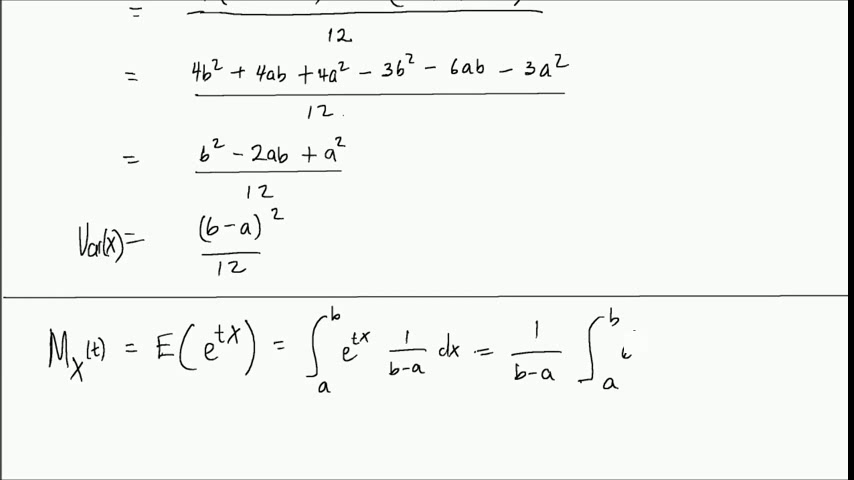 =
12
= 4b² + 4ab + 4a² − 3b² − 6ab − 3a²
12
= b² − 2ab + a²
12
Var(X) = (b−a)²
12
M_X(t) = E(e^{tX}) = ∫_a^b e^{tx} 1/(b−a) dx = 1/(b−a) ∫_a^b